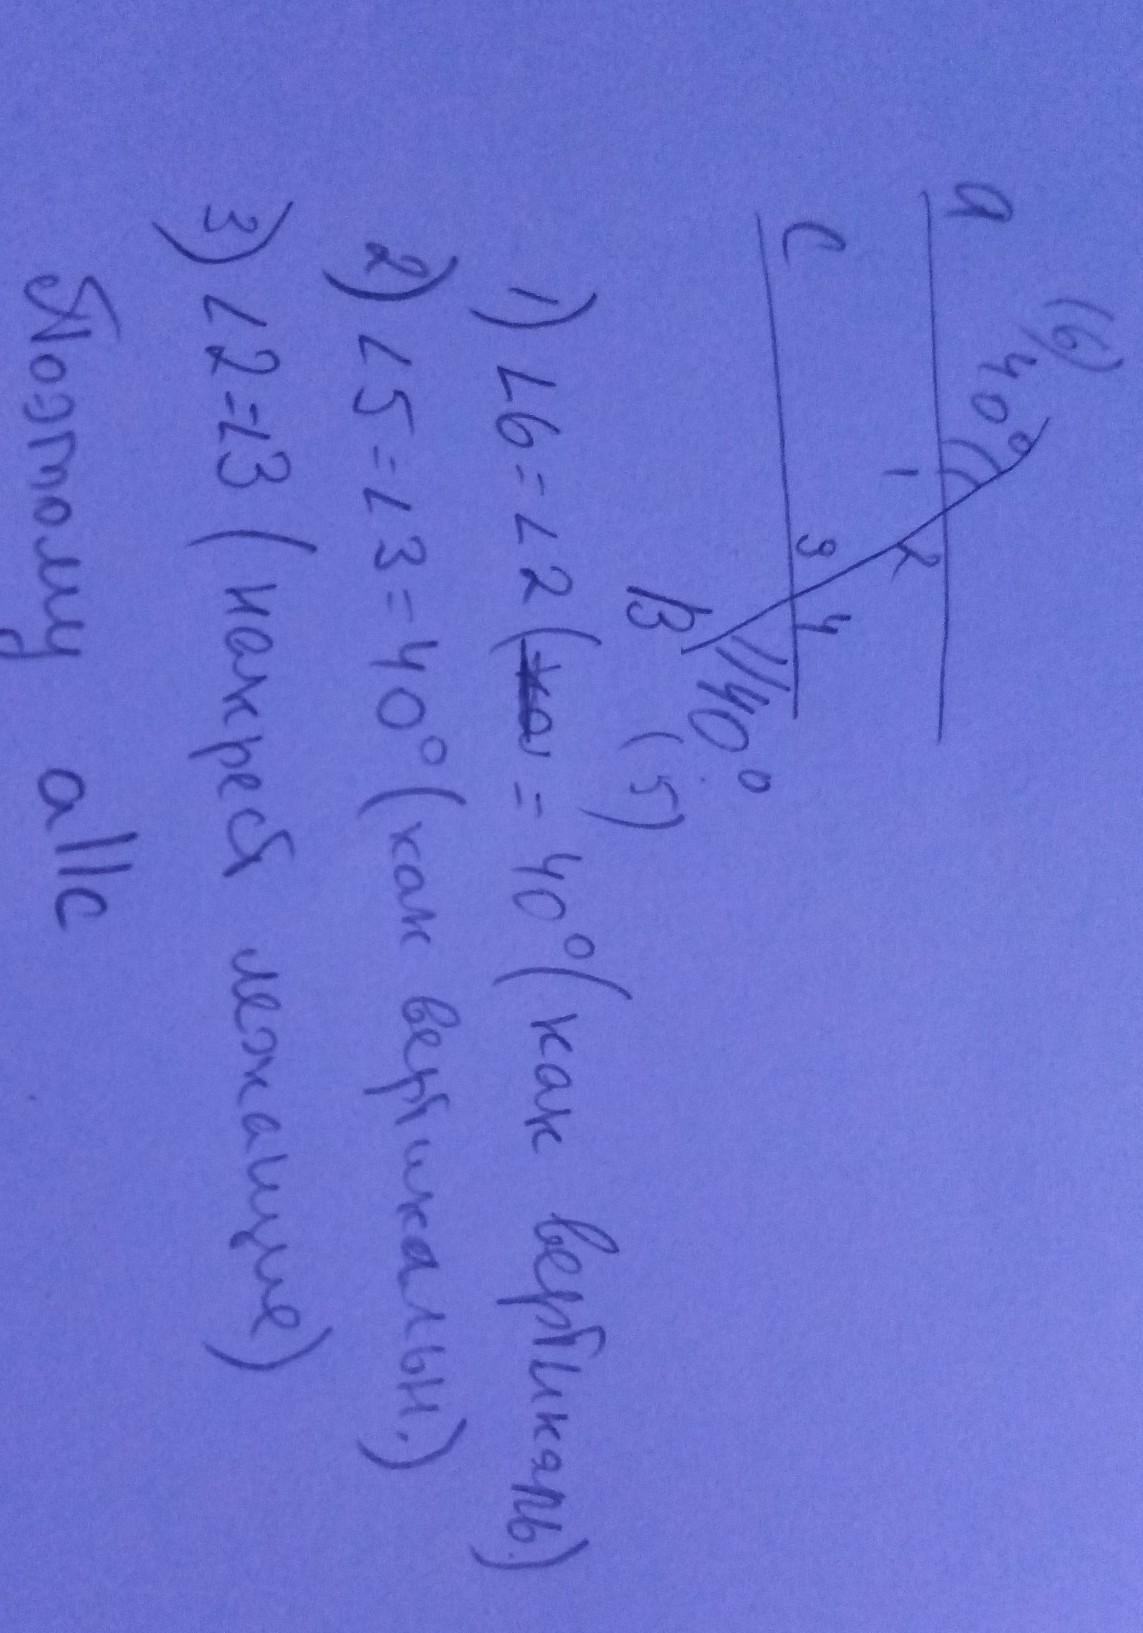 (6)
40°
a
1 2
c
3 4
40°
B (5)
1) ∠6=∠2 ( = 40° (как вертикаль.)
2) ∠5=∠3=40° (как вертикальн.)
3) ∠2=∠3 (накрест лежащие)
Поэтому a||c